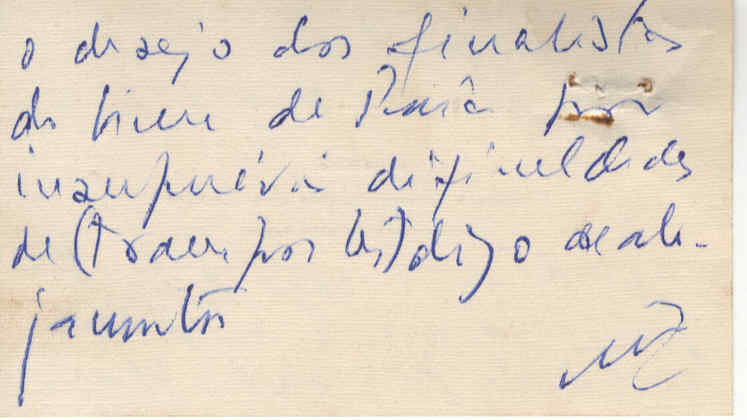 o desejo dos finalistas
do liceu de por
insuperáveis dificuldades
de (transportes) digo de alo-
jamentos